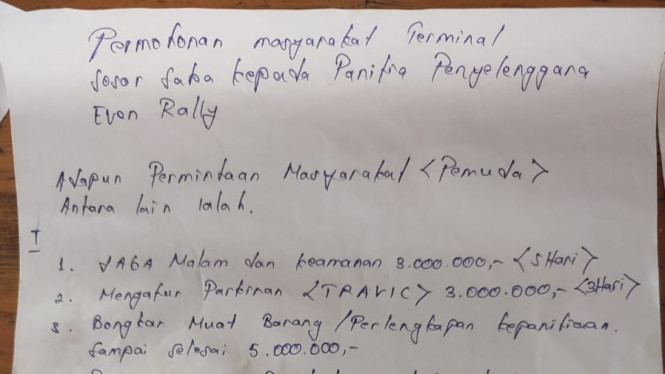 Permohonan masyarakat Terminal
sosor saba kepada Panitia Penyelenggara
Even Rally
Adapun Permintaan Masyarakat <Pemuda>
Antara lain ialah.
I
1. JAGA Malam dan keamanan 3.000.000,- <5Hari>
2. Mengatur Parkiran <TRAVIC> 3.000.000,- <3Hari>
3. Bongkar Muat Barang/Perlengkapan kepanitiaan.
Sampai selesai 5.000.000,-